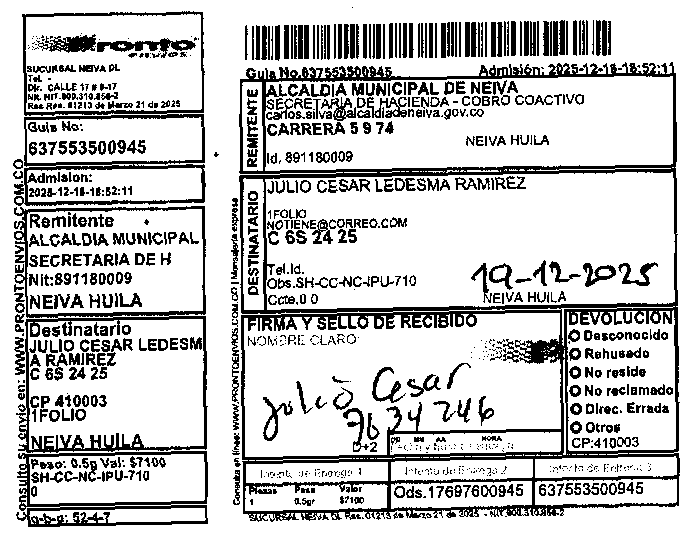 Pronto
envios
SUCURSAL NEIVA DL
Tel. -
Dir. CALLE 17 # 8-17
Nit. NIT.900.310.856-2
Res Res. 01213 de Marzo 21 de 2025
Guia No:
637553500945
Admision:
2025-12-18-18:52:11
Remitente
ALCALDIA MUNICIPAL
SECRETARIA DE H
Nit:891180009
NEIVA HUILA
Destinatario
JULIO CESAR LEDESM
A RAMIREZ
C 6S 24 25
CP 410003
1FOLIO
NEIVA HUILA
Peso: 0.5g Val: $7100
SH-CC-NC-IPU-710
0
g-b-g: 52-4-7
Consulte su envio en: WWW.PRONTOENVIOS.COM.CO
Guia No.637553500945 Admisión: 2025-12-18-18:52:11
REMITENTE
ALCALDIA MUNICIPAL DE NEIVA
SECRETARIA DE HACIENDA - COBRO COACTIVO
carlos.silva@alcaldiadeneiva.gov.co
CARRERA 5 9 74
NEIVA HUILA
Id. 891180009
DESTINATARIO
JULIO CESAR LEDESMA RAMIREZ
1FOLIO
NOTIENE@CORREO.COM
C 6S 24 25
Tel.Id.
Obs.SH-CC-NC-IPU-710
19-12-2025
Ccte.0 0
NEIVA HUILA
FIRMA Y SELLO DE RECIBIDO
NOMBRE CLARO:
Julio Cesar
7634246
D+2
DD MM AA HORA
DEVOLUCION
Desconocido
Rehusado
No reside
No reclamado
Direc. Errada
Otros
CP:410003
Intento de Entrega 1
Intento de Entrega 2
Intento de Entrega 3
Piezas Peso Valor
1 0.5gr $7100
Ods.17697600945
637553500945
SUCURSAL NEIVA DL Res. 01213 de Marzo 21 de 2025 - NIT.900.310.856-2
Consulta en linea: WWW.PRONTOENVIOS.COM.CO | Mensajeria expresa